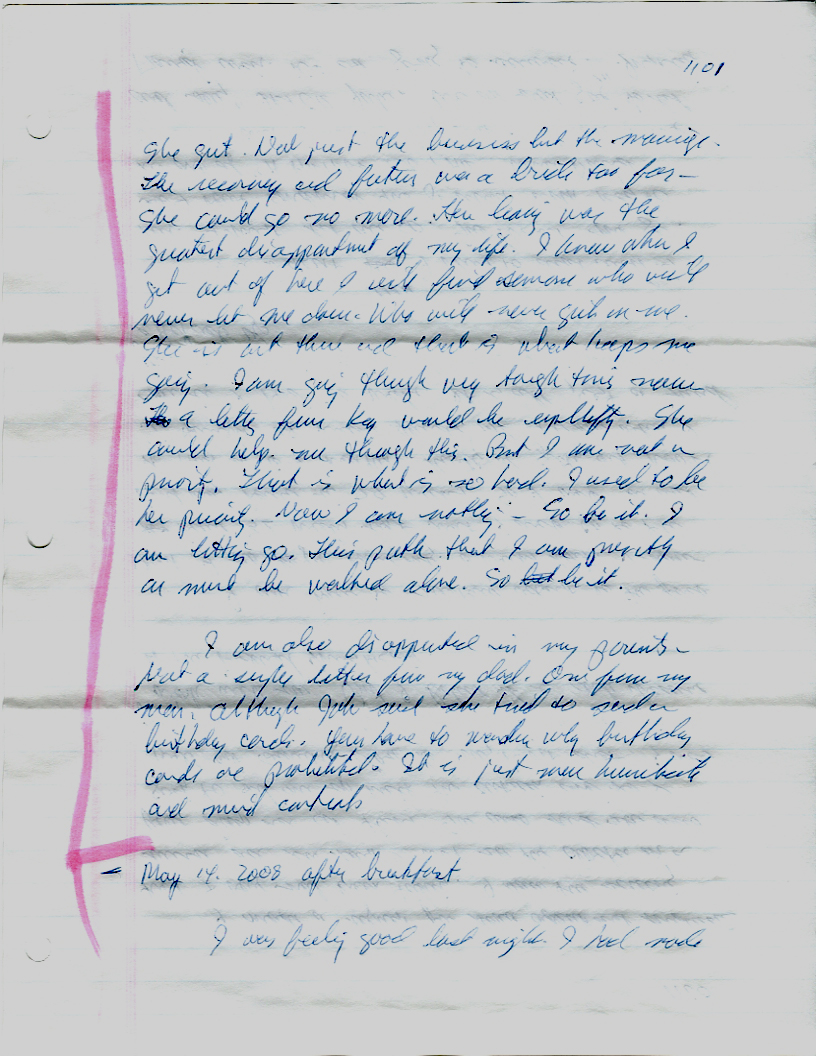 1101
She quit. Not just the business but the marriage.
The recovery and future was a bride too far -
She could go no more. Her leaving was the
greatest disappointment of my life. I know when I
get out of here I will find someone who will
never let me down. Who will never quit on me.
She is out there and that is what keeps me
going. I am going through very tough times now
a letter from Kay would be uplifting. She
could help me through this. But I am not a
priority. That is what is so hard. I used to be
her priority. Now I am nothing - So be it. I
am letting go. This path that I am presently
on must be walked alone. So be it.
I am also disappointed in my parents -
Not a single letter from my dad. One from my
mom, although said she tried to send a
birthday cards. You have to wonder why birthday
cards are prohibited. It is just more humiliate
and mind controls
- May 14. 2008 after breakfast.
I was feeling good last night. I had made